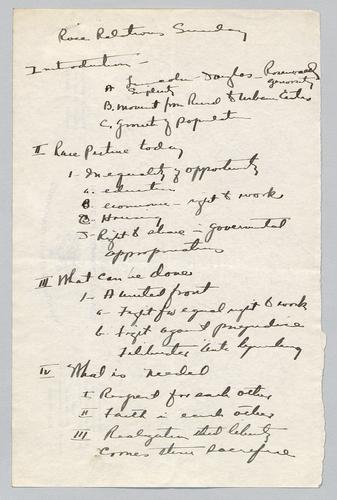 Race Relations Sunday
Introduction -
Lincoln - Douglas - Rosenwald
A Simplicity generosity
B. Movement from Rural to Urban Centers
C. Growth of Population
II Race Picture today
1- Inequality of opportunity
a. education
B. economic - right to work
Housing
3- Right to share in governmental
appropriations
III What can be done
1- A united front
a- Fight for equal right to work
b. Fight against prejudice
Filibuster Anti Lynching
IV What is needed
I Respect for each other
II Faith in each other
III Realization that liberty
comes thru sacrifice